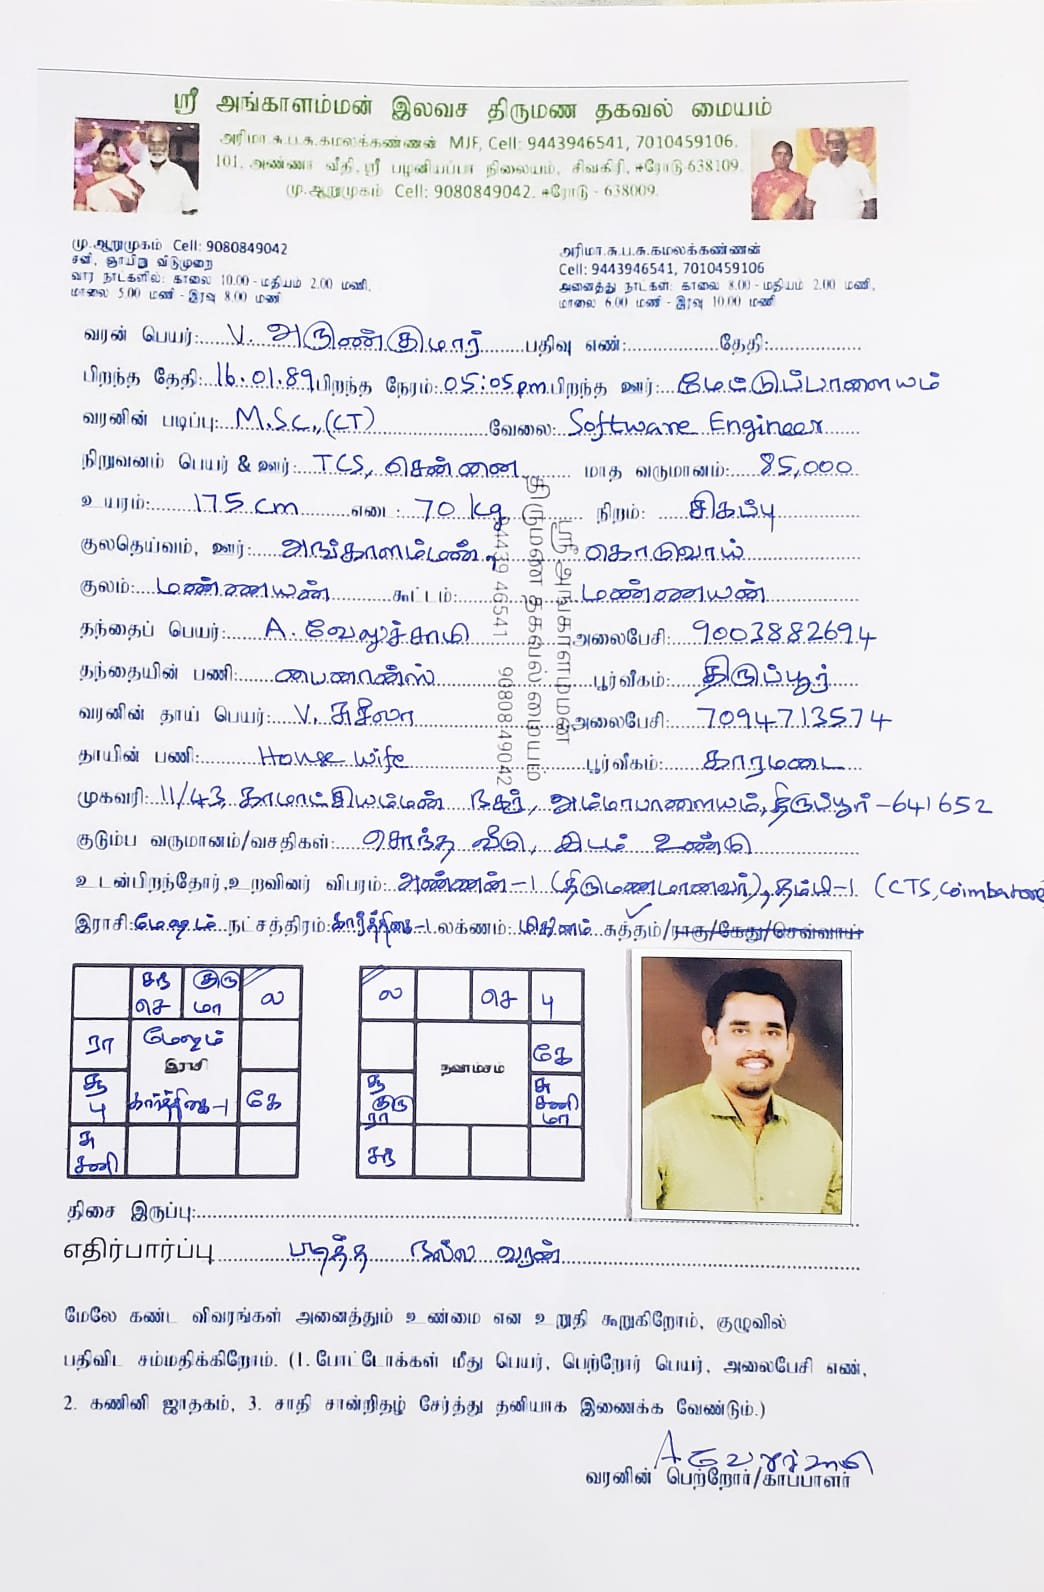 ஸ்ரீ அங்காளம்மன் இலவச திருமண தகவல் மையம்
அரிமா.சு.ப.சு.கமலக்கண்ணன் MJF, Cell: 9443946541, 7010459106.
101, அண்ணா வீதி, ஸ்ரீ பழனியப்பா நிலையம், சிவகிரி, ஈரோடு-638109.
மு.ஆறுமுகம் Cell: 9080849042. ஈரோடு - 638009.
மு.ஆறுமுகம் Cell: 9080849042
சனி, ஞாயிறு விடுமுறை
வார நாட்களில்: காலை 10.00 - மதியம் 2.00 மணி,
மாலை 5.00 மணி - இரவு 8.00 மணி
அரிமா.சு.ப.சு.கமலக்கண்ணன்
Cell: 9443946541, 7010459106
அனைத்து நாட்கள்: காலை 8.00 - மதியம் 2.00 மணி,
மாலை 6.00 மணி - இரவு 10.00 மணி
வரன் பெயர்: V. அருண்குமார் பதிவு எண்: தேதி:
பிறந்த தேதி: 16.01.89 பிறந்த நேரம்: 05:05pm பிறந்த ஊர்: மேட்டுப்பாளையம்
வரனின் படிப்பு: M.Sc., (CT) வேலை: Software Engineer
நிறுவனம் பெயர் & ஊர்: TCS, சென்னை மாத வருமானம்: 85,000
உயரம்: 175 cm எடை: 70 kg நிறம்: சிகப்பு
குலதெய்வம், ஊர்: அங்காளம்மன், கொடுவாய்
குலம்: மண்ணையன் கூட்டம்: மண்ணையன்
தந்தைப் பெயர்: A. வேலுச்சாமி அலைபேசி: 9003882694
தந்தையின் பணி: பைனான்ஸ் பூர்வீகம்: திருப்பூர்
வரனின் தாய் பெயர்: V. சுசீலா அலைபேசி: 7094713574
தாயின் பணி: House wife பூர்வீகம்: காரமடை
முகவரி: 11/43, காமாட்சியம்மன் நகர், அம்மாபாளையம், திருப்பூர் - 641652
குடும்ப வருமானம்/வசதிகள்: சொந்த வீடு, இடம் உண்டு
உடன்பிறந்தோர்,உறவினர் விபரம்: அண்ணன்-1 (திருமணமானவர்), தம்பி-1 (CTS, Coimbatore
இராசி: மேஷம் நட்சத்திரம்: கார்த்திகை-1 லக்னம்: மிதுனம் சுத்தம்/ராகு/கேது/செவ்வாய்
ஸ்ரீ அங்காளம்மன்
திருமண தகவல் மையம்
94439 46541 90808 49042
சந் செ குரு மா ல
ரா மேஷம்
இராசி
சூ பு கார்த்திகை-1 கே
சு சனி
ல செ பு
கே
நவாம்சம்
சூ குரு ரா சு சனி மா
சந்
திசை இருப்பு:
எதிர்பார்ப்பு படித்த நல்ல வரன்
மேலே கண்ட விவரங்கள் அனைத்தும் உண்மை என உறுதி கூறுகிறோம், குழுவில்
பதிவிட சம்மதிக்கிறோம். (1. போட்டோக்கள் மீது பெயர், பெற்றோர் பெயர், அலைபேசி எண்,
2. கணினி ஜாதகம், 3. சாதி சான்றிதழ் சேர்த்து தனியாக இணைக்க வேண்டும்.)
A வேலுச்சாமி
வரனின் பெற்றோர்/காப்பாளர்